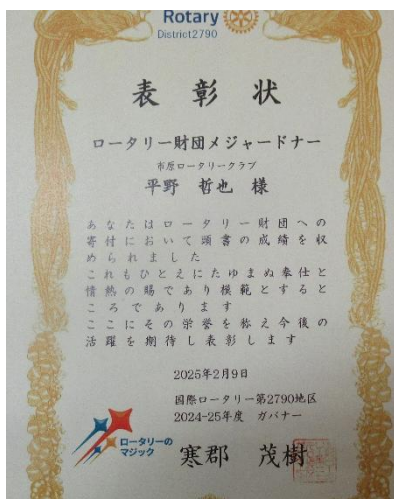 Rotary
District2790
表彰状
ロータリー財団メジャードナー
市原ロータリークラブ
平野 哲也 様
あなたはロータリー財団への
寄付において頭書の成績を収
められました
これもひとえにたゆまぬ奉仕と
情熱の賜であり模範とすると
ころであります
ここにその栄誉を称え今後の
活躍を期待し表彰します
2025年2月9日
国際ロータリー第2790地区
2024-25年度 ガバナー
寒郡 茂樹
ロータリーの
マジック